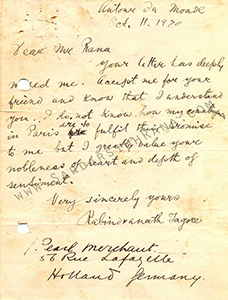 Autour du Monde
Oct. 11. 1920
Dear Mr Rana
your letter has deeply
moved me. Accept me for your
friend and know that I understand
you. I do not know how my
in Paris are to fulfil their promise
to me but I greatly value your
nobleness of heart and depth of
sentiment.
Very sincerely yours
Rabindranath Tagore
Pearl Merchant
56 Rue Lafayette
Holland Germany.
WWW.SARDARSINHRANA.COM